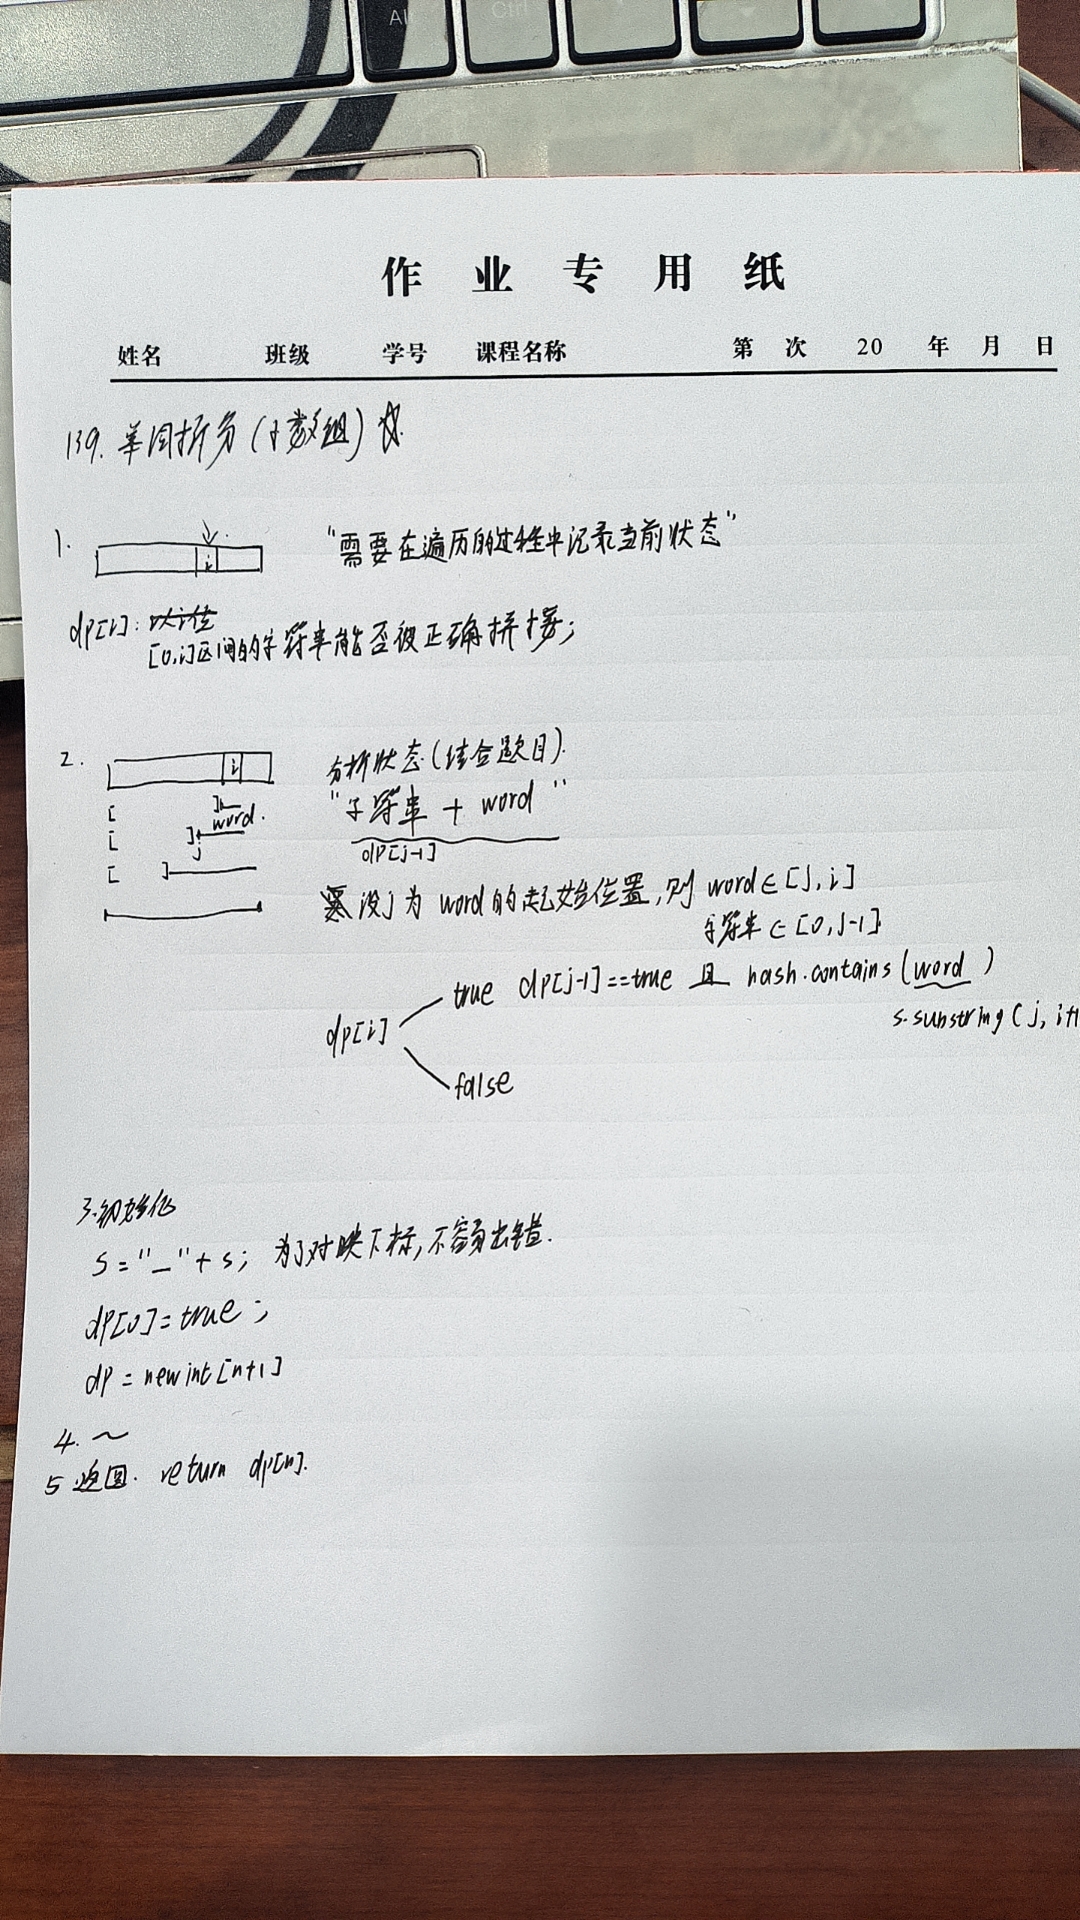 Al
Ctrl
作 业 专 用 纸
姓名 班级 学号 课程名称 第 次 20 年 月 日
139. 单词拆分 (子数组) ☆.
1. i "需要在遍历的过程中记录当前状态"
dp[i]: 以i位
[0,i]区间的字符串能否被正确拼接;
2. i 分析状态 (结合题目).
[ ] word. "字符串 + word"
[ ] j dp[j-1]
[ ] 设j为 word 的起始位置, 则 word∈[j, i]
字符串∈[0, j-1]
true dp[j-1]==true 且 hash.contains (word)
dp[i] s.substring(j, i+1
false
3.初始化
s="_"+s; 为了对映下标,不容易出错.
dp[0]=true;
dp = new int [n+1]
4. ~
5.返回. return dp[n].